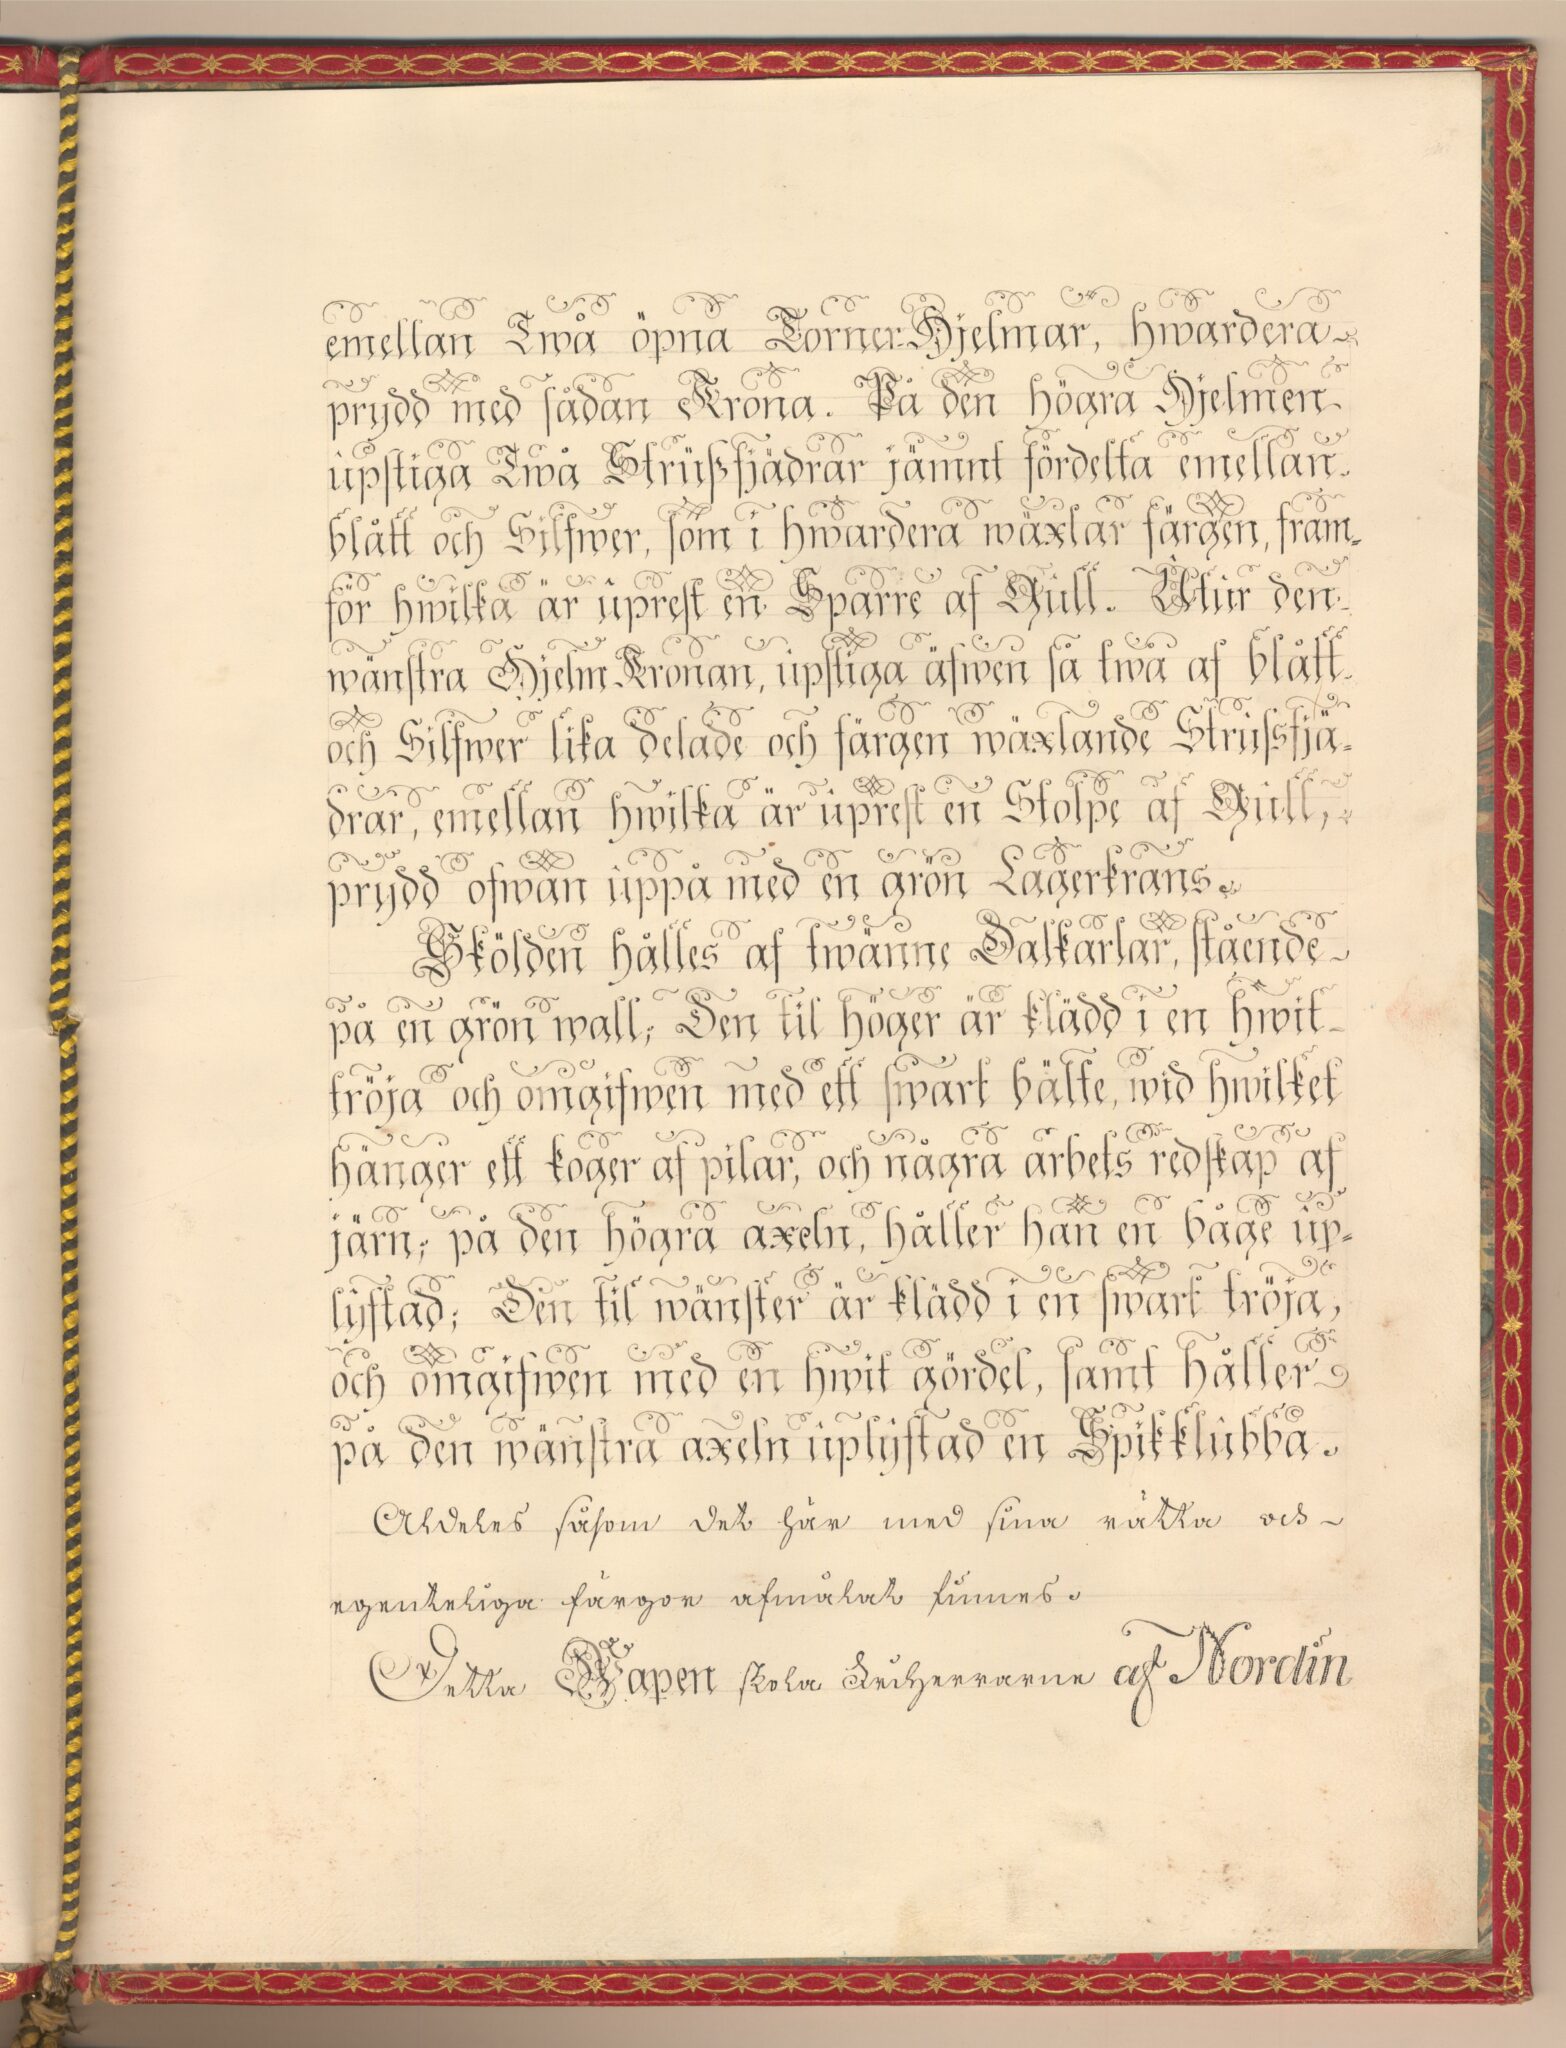 emellan Twå öpna Torner-Hjelmar, hwardera
prydd med sådan Krona. På den högra Hjelmen
upstiga Twå Strußfjädrar jämnt fördelta emellan
blått och Silfwer, som i hwardera wäxlar färgen, fram-
för hwilka är uprest en Sparre af Gull. Utur den
wänstra Hjelm-Kronan, upstiga äfwen så twå af blått
och Silfwer lika delade och färgen wäxlande Strußfjä-
drar, emellan hwilka är uprest en Stolpe af Gull,
prydd ofwan uppå med en grön Lagerkrans.
Skölden hålles af twänne Dalkarlar, stående
på en grön wall; Den til höger är klädd i en hwit
tröja och omgifwen med ett swart bälte, wid hwilket
hänger ett koger af pilar, och några arbets redskap af
järn; på den högra axeln, håller han en båge up-
lyftad; Den til wänster är klädd i en swart tröja,
och omgifwen med en hwit gördel, samt håller
på den wänstra axeln uplyftad en Spikklubba.
Aldeles såsom det här med sina rätta och
egenteliga färgor afmålat finnes.
Detta Wapen skola Ledherrarne af Nordin